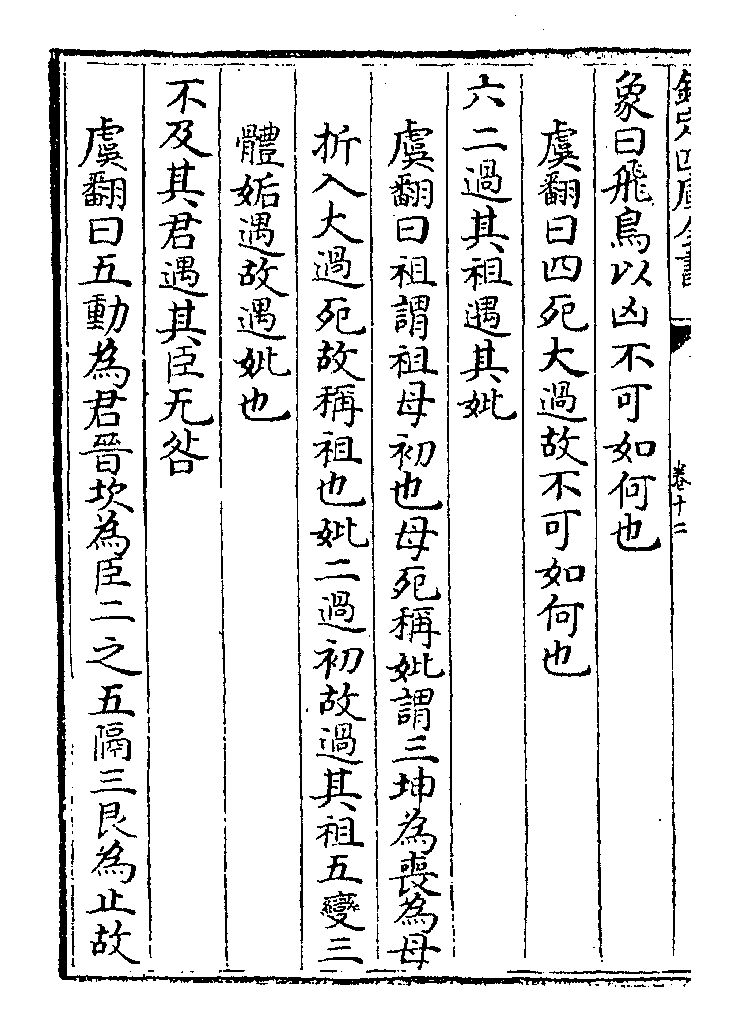 欽定四庫全書
卷十二
象曰飛鳥以凶不可如何也
虞翻曰四死大過故不可如何也
六二過其祖遇其妣
虞翻曰祖謂祖母初也母死稱妣謂三坤為喪為母
折入大過死故稱祖也妣二過初故過其祖五變三
體姤遇故遇妣也
不及其君遇其臣无咎
虞翻曰五動為君晉坎為臣二之五隔三艮為止故